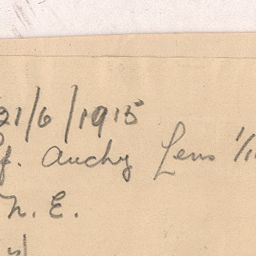 21/6/1915
f. Auchy Lens 1/1
N. E.